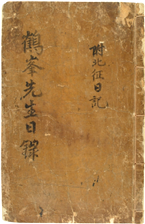 鶴峯先生日錄
附北征日記